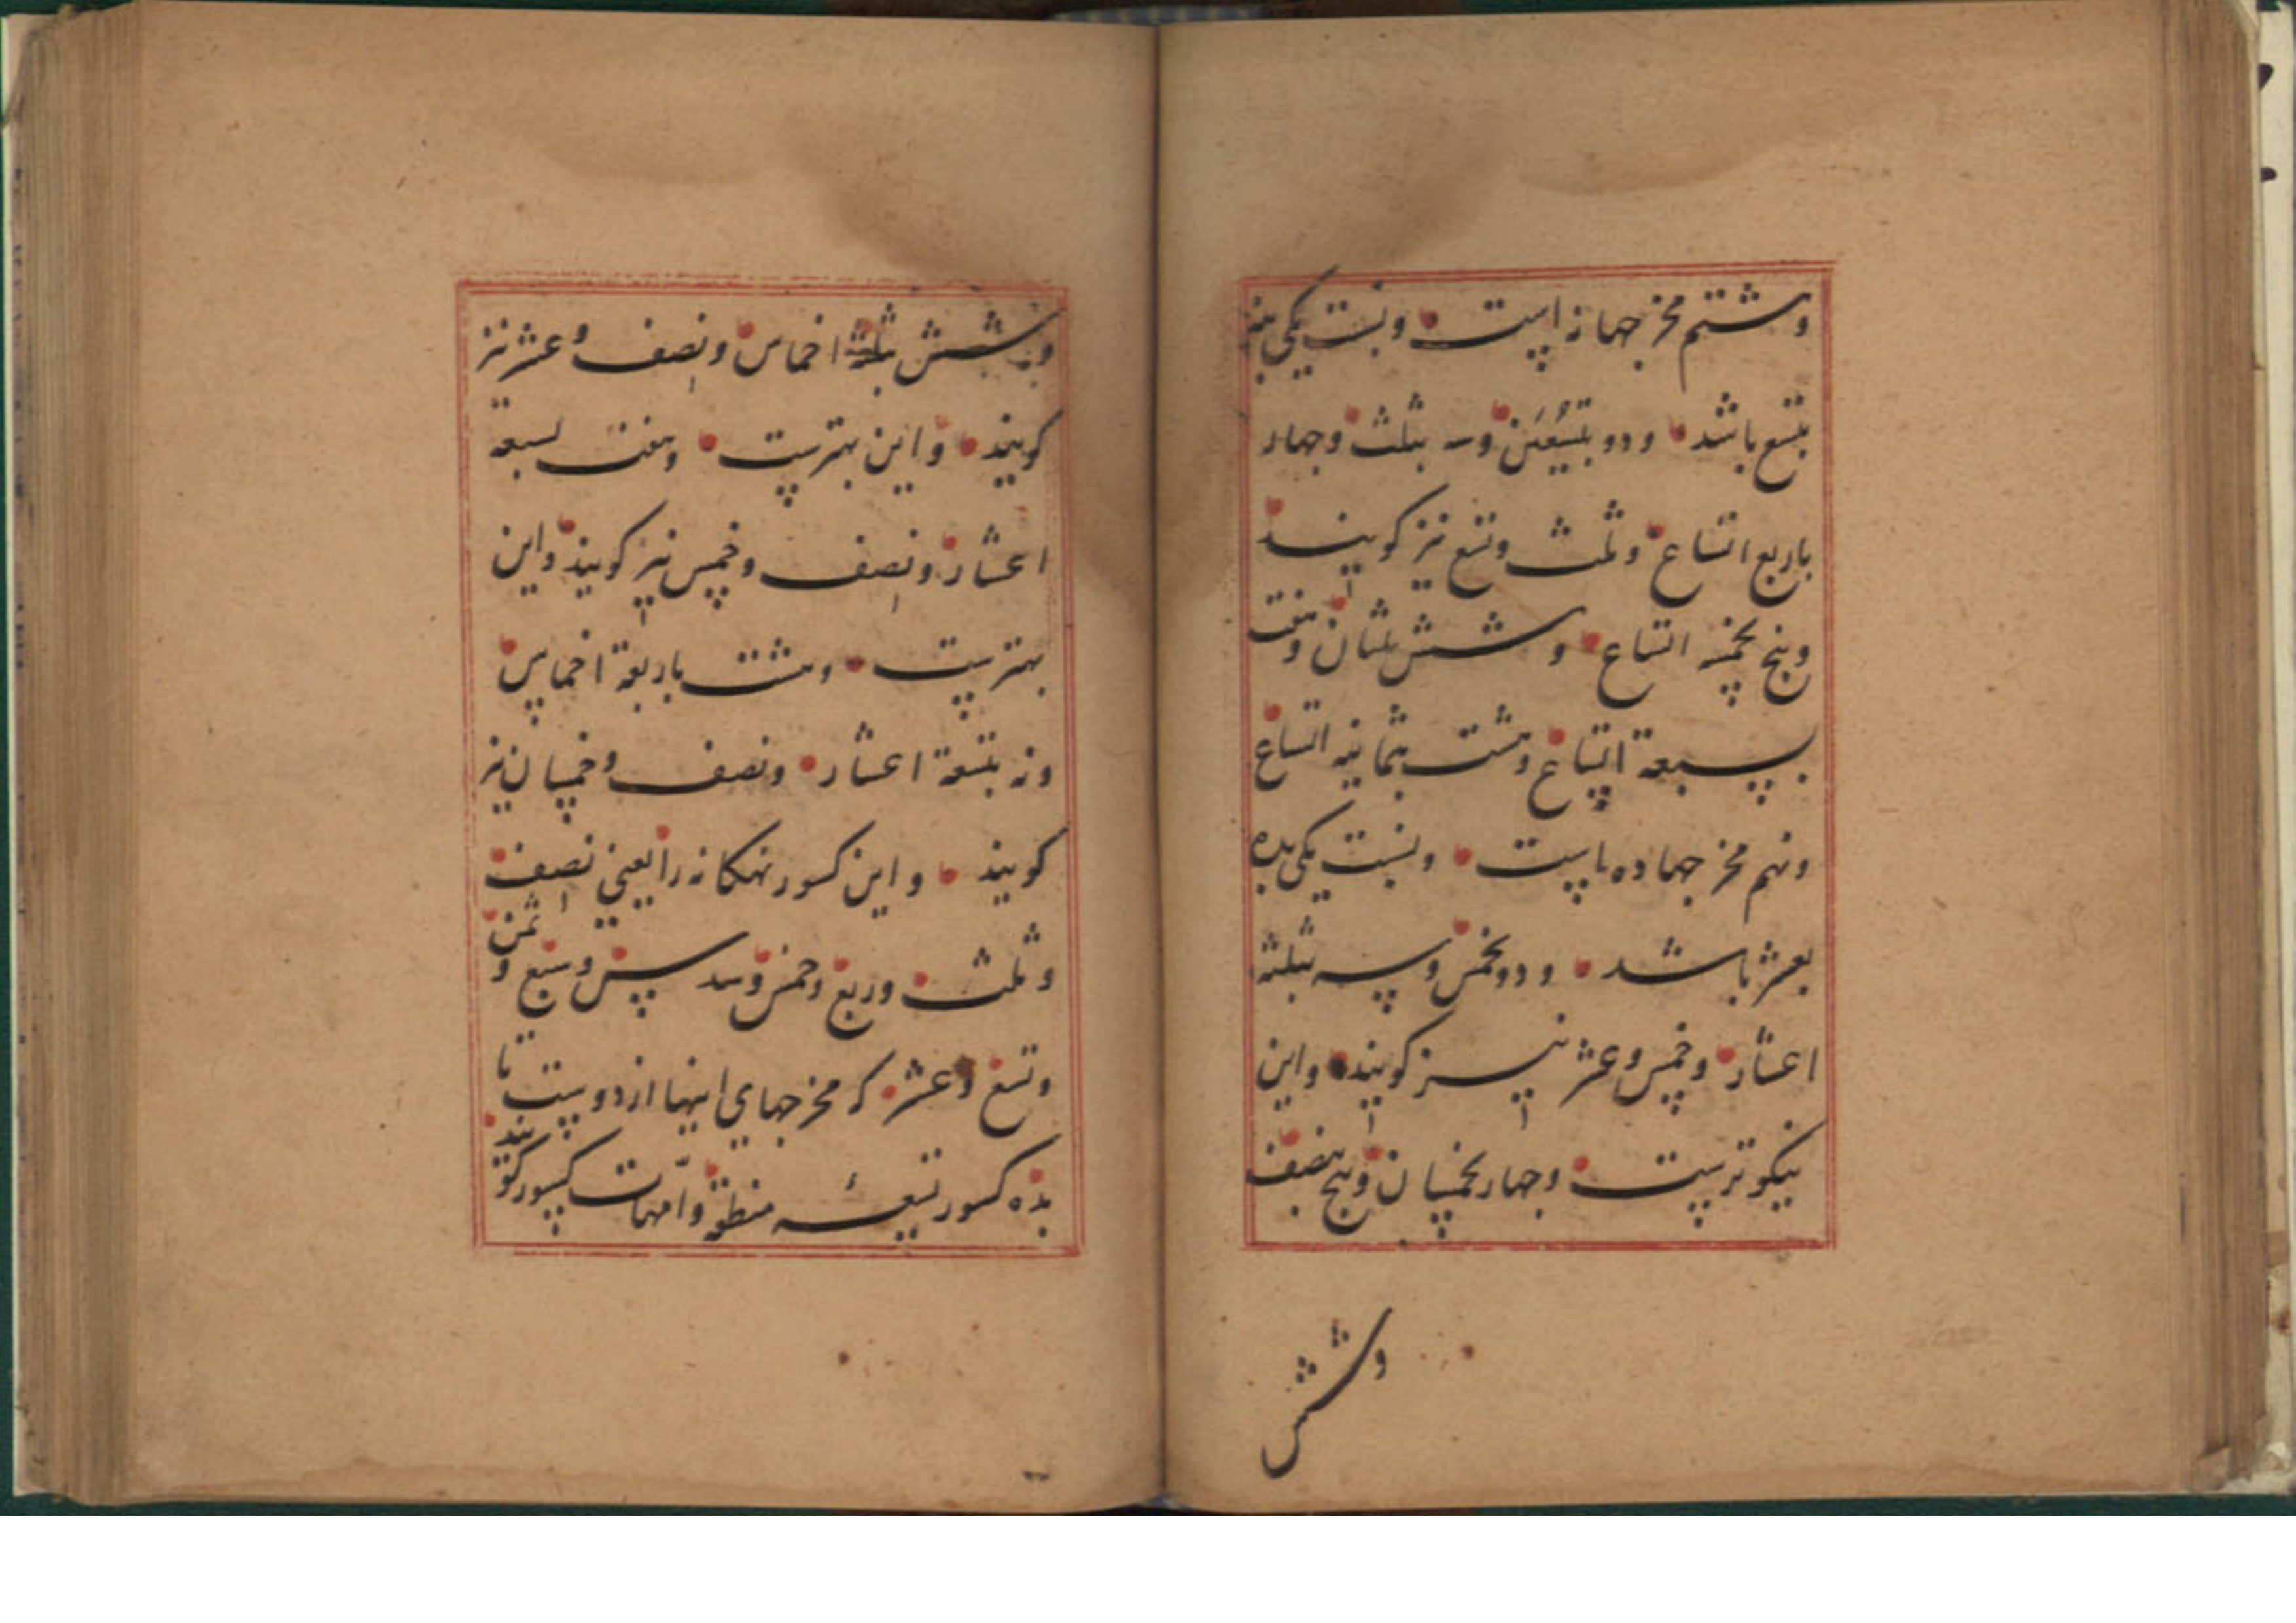 وهشتم مخرجها نه است ونسبت یکی بنه
بتسع باشد ودو بتسعین وسه بثلث وچهار
باربع اتساع وثلث وتسع نیز گویند
وپنج بخمسه اتساع وشش ثلثان وهفت
بسبعة اتساع وهشت بثمانیه اتساع
ونهم مخرجها ده است ونسبت یکی بده
بعشر باشد ودو بخمس وسه بثلثة
اعشار وخمس وعشر نیز گویند واین
نیکو ترست وچهار بخمسان وپنج بنصف
وشش
وشش بثلثة اخماس ونصف وعشر نیز
گویند واین بهترست وهفت بسبعة
اعشار ونصف وخمس نیز گویند واین
بهترست وهشت باربعة اخماس
ونه بتسعة اعشار ونصف وخمسان نیز
گویند واین کسور نهگانه را یعنی نصف
وثلث وربع وخمس وسدس وسبع وثمن
وتسع وعشر که مخرجهای اینها از دوست تا
بده کسور تسعهٔ منطقه وامّهات کسور گویند